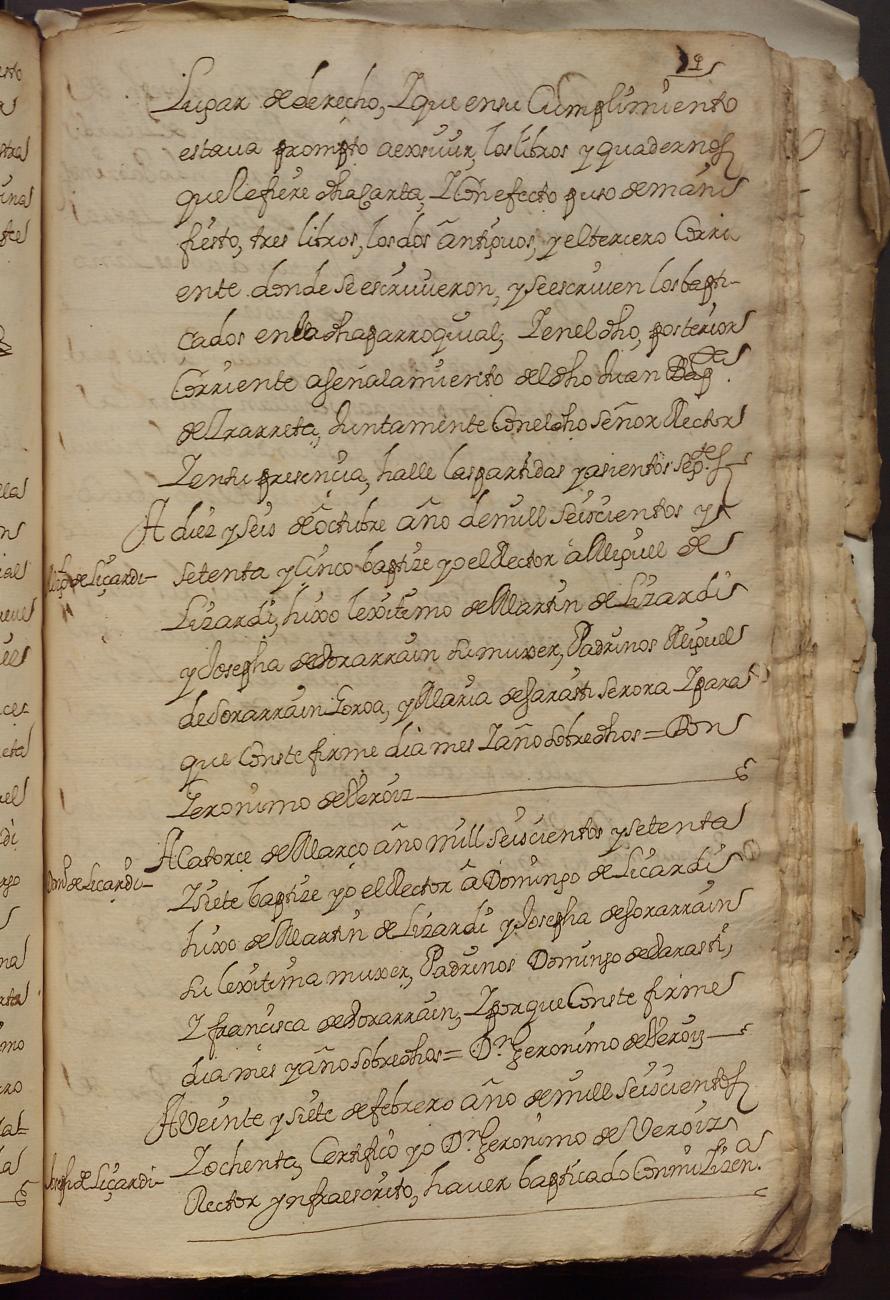 9
Lugar de derecho, Y que en su Cumplimiento
estaua prompto aexsiuir, los libros y quadernos
que Refiere dha Carta, Y Con efecto puso de mani
fiesto, tres libros, los dos antiguos, y el tercero Corri
ente donde se escriuieron, y se escriuen los bapti-
çados en la dha parroquial, Y en el dho, posterior
Corriente a señalamiento del dho Juan
de Yrarreta, Juntamente Con el dho señor Rector
Y en su presençia, halle las partidas y asientos sigtes
A diez y seis de octubre año de mill seiscientos y
setenta y Cinco baptize yo el Rector a Miguel de
Lizardi, hixo lexitimo de Martin de Lizardi
y Josepha de Sorarrain su muxer, Padrinos Miguel
de Sorarrain Goroa, y Maria de Garasti serora Y para
que Conste firme dia mes Y año sobredhos = Don
Geronimo de Veroiz
A Catorce de Março año mill seiscientos y setenta
Y siete baptize yo el Rector a Domingo de Liçardi
hixo de Martin de Lizardi y Josepha de Sorarrain
su lexitima muxer, Padrinos Domingo de Garasti,
Y francisca de Sorarrain, Y porque Conste firme
dia mes y año sobredhos = Dn Geronimo de Veroiz
A Veinte y siete de febrero año de mill seiscientos
Y ochenta, Certifico yo Dn Geronimo de Veroiz
Rector ynfraescrito, hauer baptiçado Con mi Lizena
Migl de Liçardi
Domo de Liçardi
Joseph de Liçardi